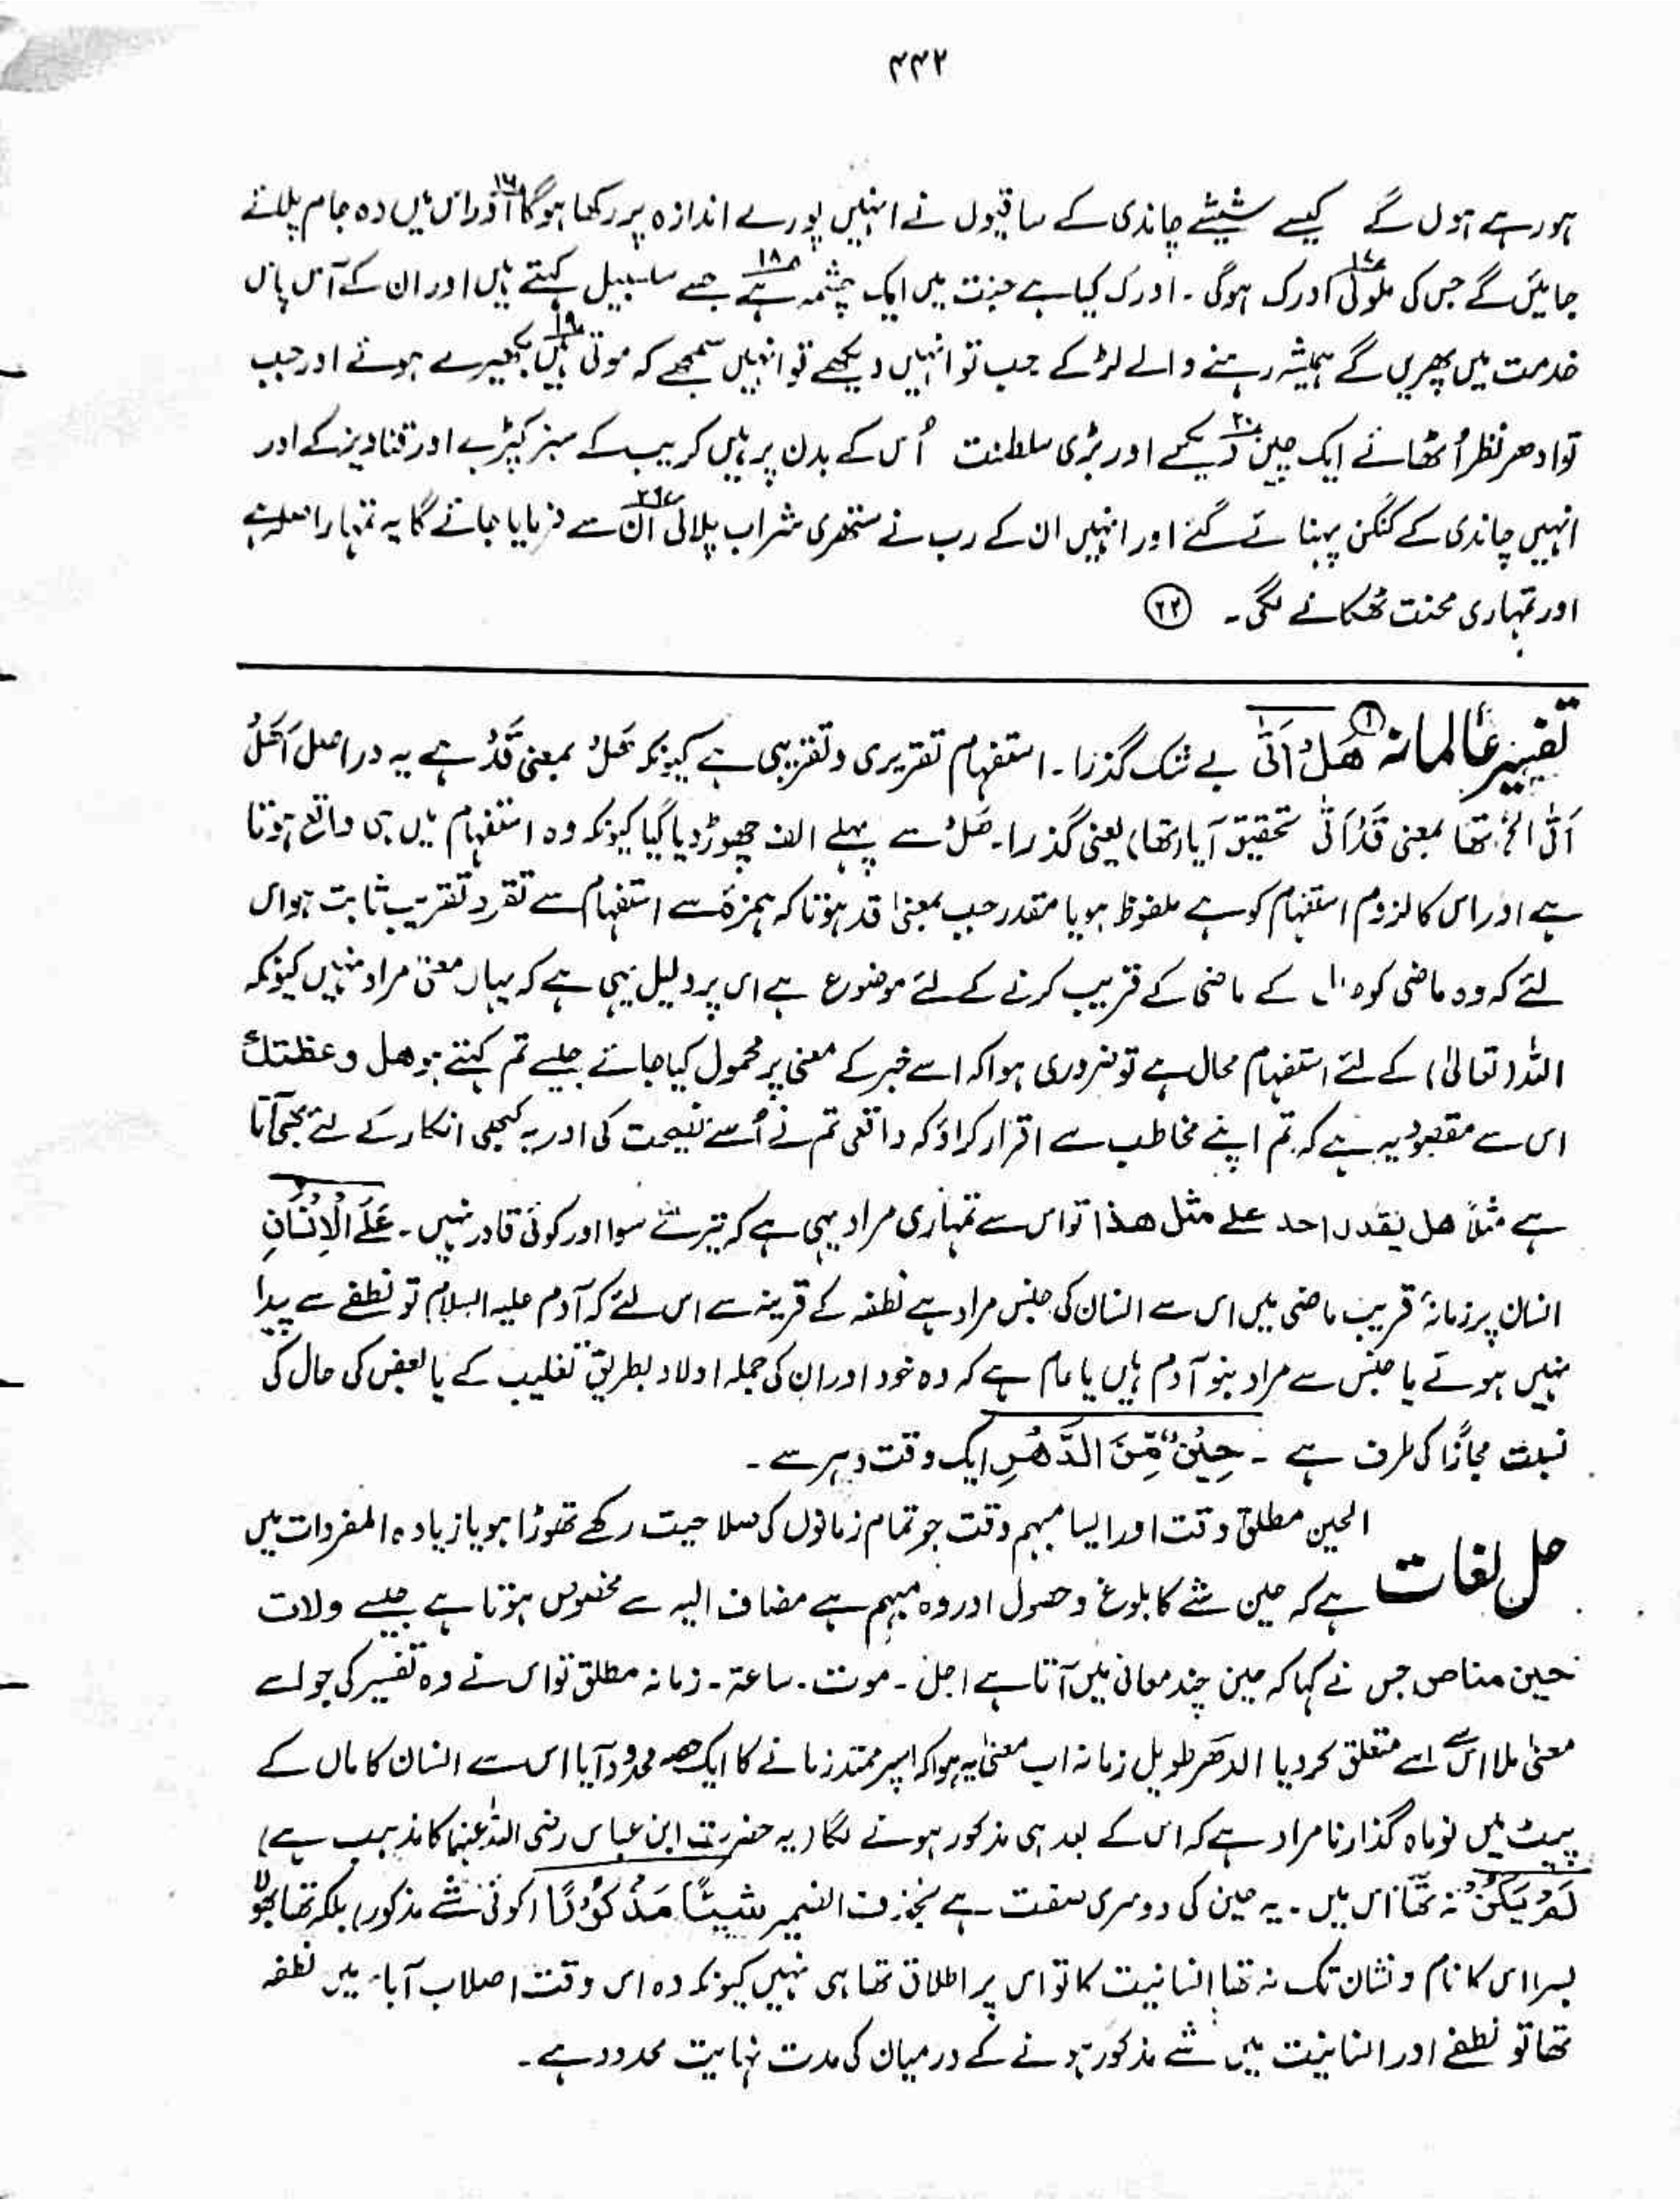 ۴۴۲
ہورہے ہوں گے کیسے شیشے چاندی کے ساقیوں نے انہیں پورے اندازہ پر رکھا ہوگا ۱۶ اور اس میں وہ جام پلائے
جائیں گے جس کی ملونی ۱۷ ادرک ہوگی ۔ ادرک کیا ہے جنت میں ایک چشمہ ہے ۱۸ جسے سلسبیل کہتے ہیں اور ان کے آس پاس
خدمت میں پھریں گے ہمیشہ رہنے والے لڑکے جب تو انہیں دیکھے تو انہیں سمجھے کہ موتی ہیں ۱۹ بکھیرے ہوئے اور جب
تو ادھر نظر اُٹھائے ایک چین ۲۰ دیکھے اور بڑی سلطنت اُس کے بدن پر ہیں کریب کے سبز کپڑے اور قنادیز کے اور
انہیں چاندی کے کنگن پہنائے گئے اور انہیں ان کے رب نے ستھری شراب پلائی ۲۱ ان سے فرمایا جائے گا یہ تمہارا صلہ ہے
اور تمہاری محنت ٹھکانے لگی ۔ ۲۲
تفسیر عالمانہ ۱ ھَلْ اَتٰی بے شک گذرا ۔ استفہام تقریری و تقریبی ہے کیونکہ ھَلْ بمعنی قَدْ ہے یہ دراصل اَھَلْ
اَتٰی الخ تھا بمعنی قَدْ اَتٰی تحقیق آیا (تھا) یعنی گذرا ۔ ھَلْ سے پہلے الف چھوڑ دیا گیا کیونکہ وہ استفہام میں ہی واقع ہوتا
ہے اور اس کا لزوم استفہام کو ہے ملفوظ ہو یا مقدر جب بمعنیٰ قد ہو تاکہ ہمزہ سے استفہام سے تقرر و تقریب ثابت ہو اس
لئے کہ وہ ماضی کو حال کے ماضی کے قریب کرنے کے لئے موضوع ہے اس پر دلیل یہی ہے کہ یہاں معنیٰ مراد نہیں کیونکہ
اللہ (تعالیٰ) کے لئے استفہام محال ہے تو ضروری ہوا کہ اسے خبر کے معنی پر محمول کیا جائے جیسے تم کہتے ہو ھل وعظتك
اس سے مقصود یہ ہے کہ تم اپنے مخاطب سے اقرار کراؤ کہ واقعی تم نے اُسے نصیحت کی اور یہ کبھی انکار کے لئے بھی آتا
ہے مثلاً ھل یقدر احد علے مثل ھذا تو اس سے تمہاری مراد یہی ہے کہ تیرے سوا اور کوئی قادر نہیں ۔ عَلَے الْاِنْسَانِ
انسان پر زمانۂ قریب ماضی میں اس سے انسان کی جنس مراد ہے نطفہ کے قرینہ سے اس لئے کہ آدم علیہ السلام تو نطفے سے پیدا
نہیں ہوئے یا جنس سے مراد بنو آدم ہیں یا عام ہے کہ وہ خود اور ان کی جملہ اولاد بطریق تغلیب کے یا بعض کی حال کی
نسبت مجازًا کی طرف ہے ۔ حِیْنٌ مِّنَ الدَّھْرِ ایک وقت دہر سے ۔
الحین مطلق وقت اور ایسا مبہم وقت جو تمام زمانوں کی صلاحیت رکھے تھوڑا ہو یا زیادہ المفردات میں
حل لغات ہے کہ حین شے کا بلوغ و حصول اور وہ مبہم ہے مضاف الیہ سے مخصوص ہوتا ہے جیسے ولات
حین مناص جس نے کہا کہ حین چند معانی میں آتا ہے اجل ۔ موت ۔ ساعۃ ۔ زمانہ مطلق تو اس نے وہ تفسیر کی جو اسے
معنیٰ ملا اس سے اسے متعلق کردیا الدھر طویل زمانہ اب معنیٰ یہ ہوا کہ اسپر ممتد زمانے کا ایک حصہ محدود آیا اس سے انسان کا ماں کے
پیٹ میں نو ماہ گذارنا مراد ہے کہ اس کے بعد ہی مذکور ہونے لگا (یہ حضرت ابن عباس رضی اللہ عنہما کا مذہب ہے)
لَمْ یَکُنْ نہ تھا اس میں ۔ یہ حین کی دوسری صفت ہے بحذف الضمیر شَیْئًا مَّذْکُوْرًا (کوئی شے مذکور) بلکہ تھا بھولا
بسرا اس کا نام و نشان تک نہ تھا انسانیت کا تو اس پر اطلاق تھا ہی نہیں کیونکہ وہ اس وقت اصلاب آباء میں نطفہ
تھا تو نطفے اور انسانیت میں شے مذکور ہونے کے درمیان کی مدت نہایت محدود ہے ۔